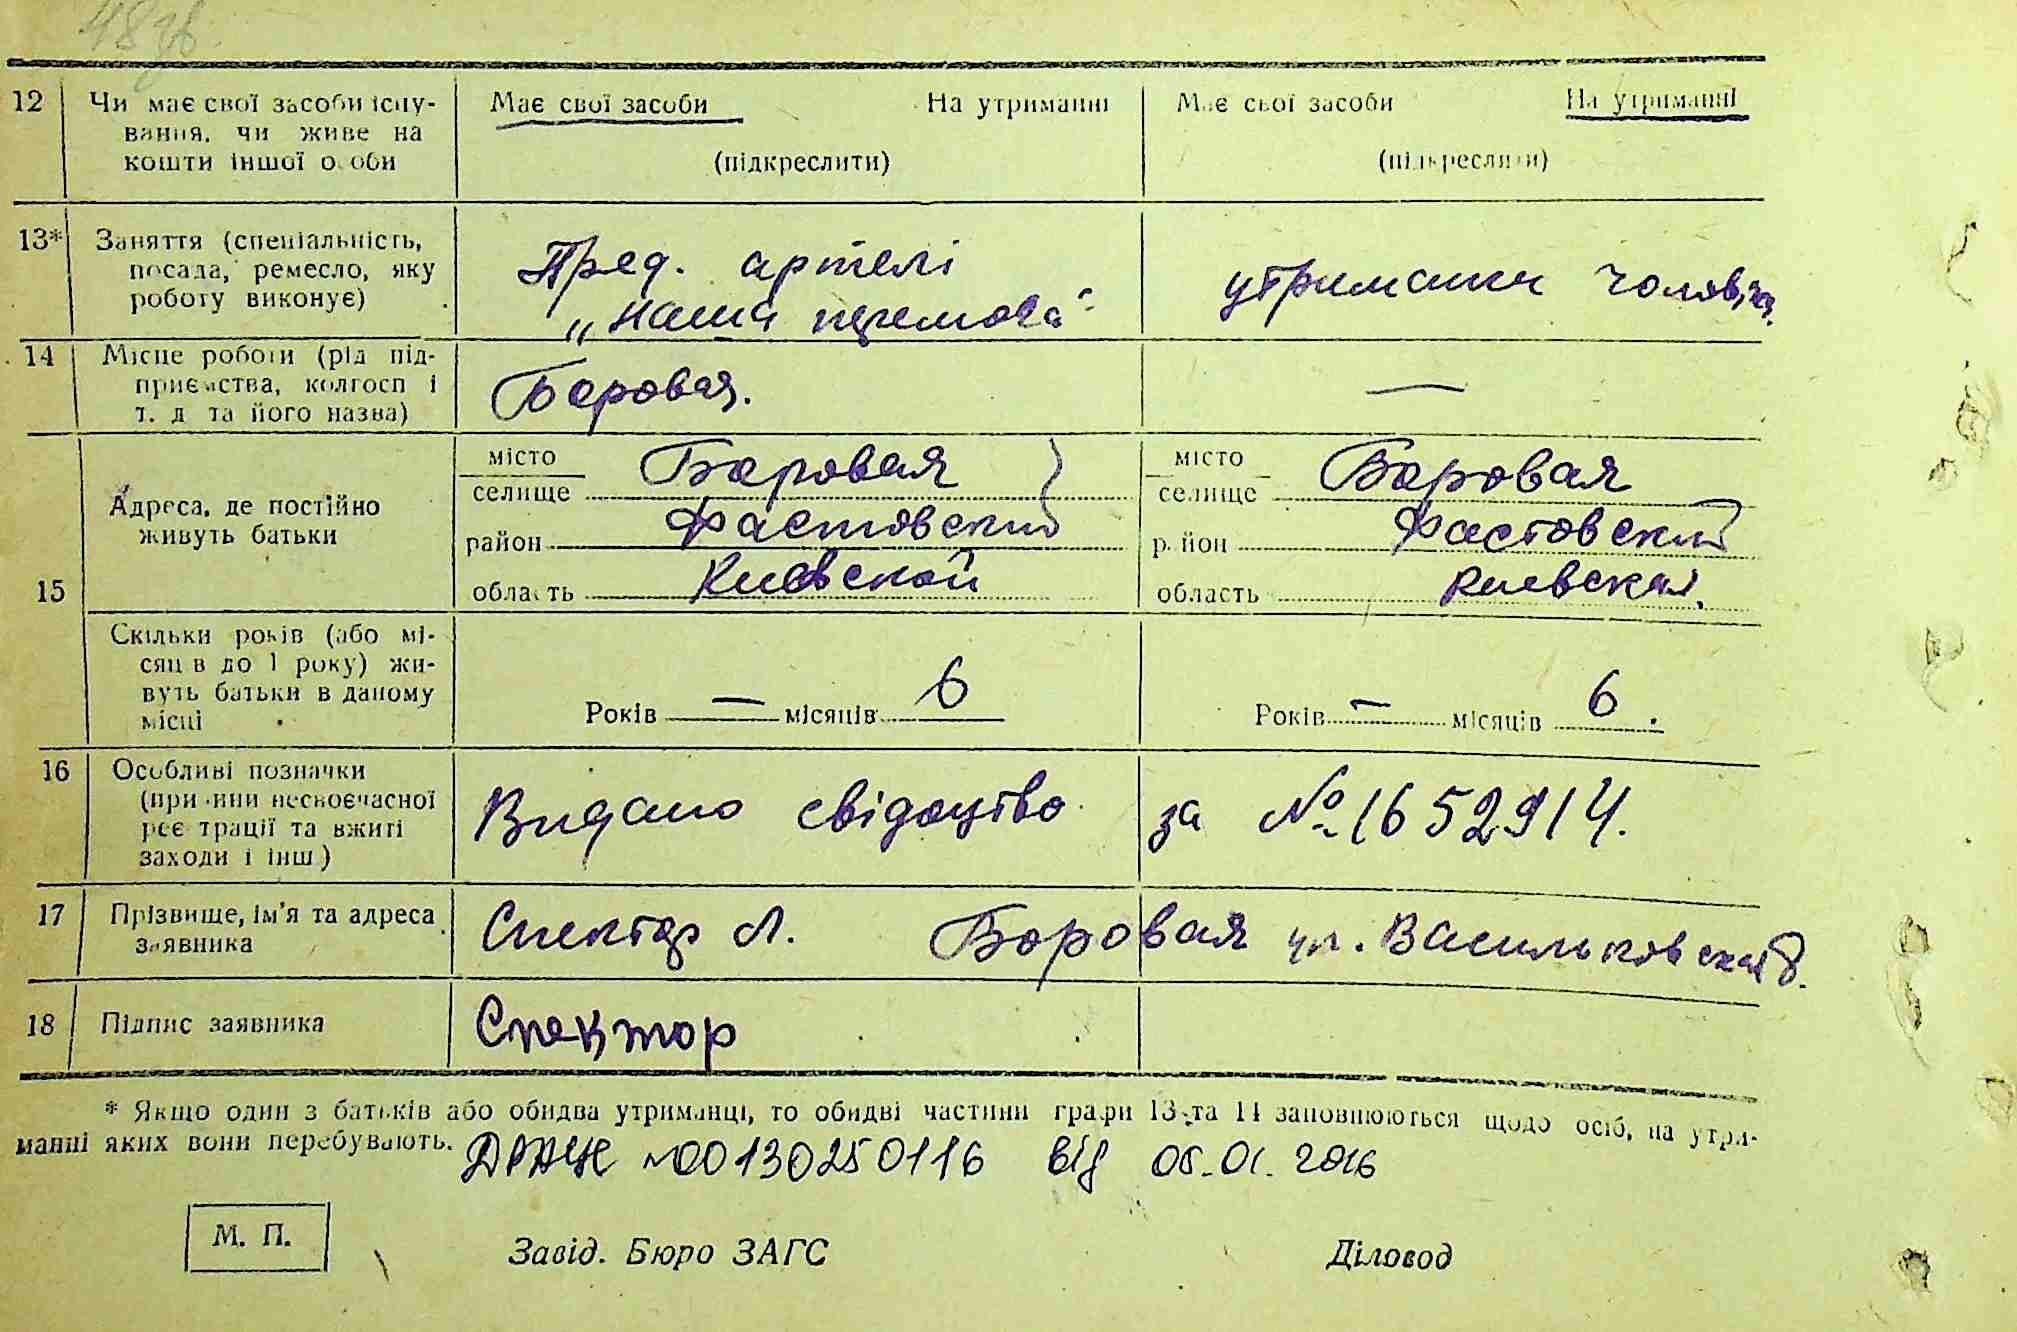 48 зв.
12 Чи має свої засоби існу-
вання, чи живе на
кошти іншої особи
Має свої засоби На утриманні
(підкреслити)
Має свої засоби На утриманні
(підкреслити)
13* Заняття (спеціальність,
посада, ремесло, яку
роботу виконує)
Пред. артелі
„Наша перемога"
утриманка чоловіка.
14 Місце роботи (рід під-
приємства, колгосп і
т. д. та його назва)
Боровая.
—
15 Адреса, де постійно
живуть батьки
місто
селище Боровая
район Фастовский
область Киевской
місто
селище Боровая
район Фастовский
область Киевская.
Скільки років (або мі-
сяців до 1 року) жи-
вуть батьки в даному
місці
Років — місяців 6
Років — місяців 6.
16 Особливі позначки
(причини несвоєчасної
реєстрації та вжиті
заходи і інш.)
Видано свідоцтво за № 1652914.
17 Прізвище, ім'я та адреса
заявника
Спектор Л. Боровая ул. Васильковская 8.
18 Підпис заявника
Спектор
* Якщо один з батьків або обидва утриманці, то обидві частини графи 13 та 14 заповнюються щодо осіб, на утри-
манні яких вони перебувають.
ДРАЦС №00130250116 від 05.01.2016
М. П.
Завід. Бюро ЗАГС Діловод